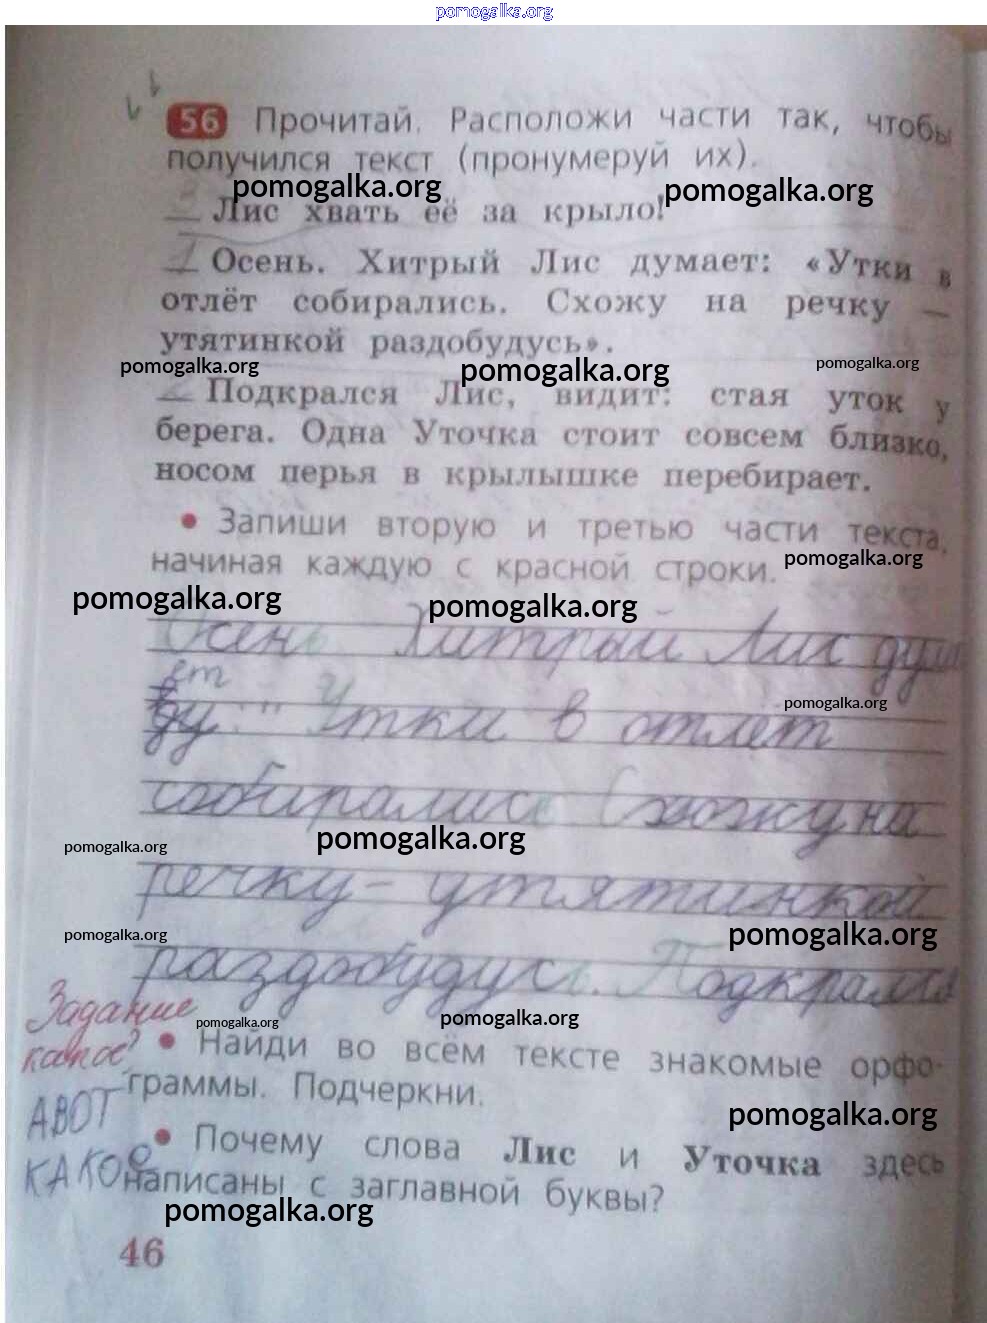 pomogalka.org
56 Прочитай. Расположи части так, чтобы
получился текст (пронумеруй их).
pomogalka.org pomogalka.org
Лис хвать её за крыло!
1 Осень. Хитрый Лис думает: «Утки в
отлёт собирались. Схожу на речку —
утятинкой раздобудусь».
pomogalka.org pomogalka.org pomogalka.org
2 Подкрался Лис, видит: стая уток у
берега. Одна Уточка стоит совсем близко,
носом перья в крылышке перебирает.
• Запиши вторую и третью части текста,
начиная каждую с красной строки.
pomogalka.org
pomogalka.org pomogalka.org
Осень Хитрый Лис дума
ет
pomogalka.org
ду " Утки в отлёт
собирались Схожу на
pomogalka.org pomogalka.org
речку – утятинкой
pomogalka.org pomogalka.org
раздобудусь. Подкрался
Задание
какое?
pomogalka.org pomogalka.org
• Найди во всём тексте знакомые орфо-
граммы. Подчеркни.
АВОТ
КАКОЕ
pomogalka.org
• Почему слова Лис и Уточка здесь
написаны с заглавной буквы?
pomogalka.org
46